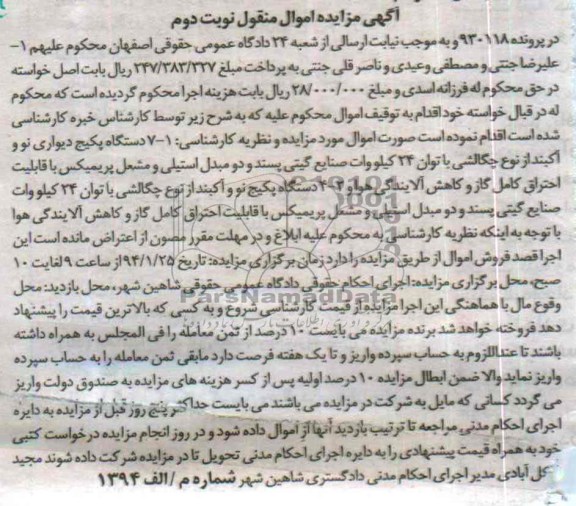 آگهی مزایده اموال منقول نوبت دوم
در پرونده ۹۳۰۱۱۸ و به موجب نیابت ارسالی از شعبه ۲۴ دادگاه عمومی حقوقی اصفهان محکوم علیهم ۱-
علیرضا جنتی و مصطفی وعیدی و ناصر قلی جنتی به پرداخت مبلغ ۲۴۷/۳۸۳/۳۲۷ ریال بابت اصل خواسته
در حق محکوم له فرزانه اسدی و مبلغ ۲۸/۰۰۰/۰۰۰ ریال بابت هزینه اجرا محکوم گردیده است که محکوم
له در قبال خواسته خود اقدام به توقیف اموال محکوم علیه که به شرح زیر توسط کارشناس خبره کارشناسی
شده است اقدام نموده است صورت اموال مورد مزایده و نظریه کارشناسی: ۱-۷ دستگاه پکیج دیواری نو و
آکبند از نوع چگالشی با توان ۲۴ کیلو وات صنایع گیتی پسند و دو مبدل استیلی و مشعل پریمیکس با قابلیت
احتراق کامل گاز و کاهش آلایندگی هوا و ۲-۴ دستگاه پکیج نو و آکبند از نوع چگالشی با توان ۲۴ کیلو وات
صنایع گیتی پسند و دو مبدل استیلی و مشعل پریمیکس با قابلیت احتراق کامل گاز و کاهش آلایندگی هوا
با توجه به اینکه نظریه کارشناسی به محکوم علیه ابلاغ و در مهلت مقرر مصون از اعتراض مانده است این
اجرا قصد فروش اموال از طریق مزایده را دارد زمان برگزاری مزایده: تاریخ ۹۴/۱/۲۵ از ساعت ۹ لغایت ۱۰
صبح، محل برگزاری مزایده: اجرای احکام حقوقی دادگاه عمومی حقوقی شاهین شهر، محل بازدید: محل
وقوع مال با هماهنگی این اجرا مزایده از قیمت کارشناسی شروع و به کسی که بالاترین قیمت را پیشنهاد
دهد فروخته خواهد شد برنده مزایده می بایست ۱۰ درصد از ثمن معامله را فی المجلس به همراه داشته
باشند تا عنداللزوم به حساب سپرده واریز و تا یک هفته فرصت دارد مابقی ثمن معامله را به حساب سپرده
واریز نماید والا ضمن ابطال مزایده ۱۰ درصد اولیه پس از کسر هزینه های مزایده به صندوق دولت واریز
می گردد کسانی که مایل به شرکت در مزایده می باشند می بایست حداکثر پنج روز قبل از مزایده به دایره
اجرای احکام مدنی مراجعه تا ترتیب بازدید آنها از اموال داده شود و در روز انجام مزایده درخواست کتبی
خود به همراه قیمت پیشنهادی را به دایره اجرای احکام مدنی تحویل تا در مزایده شرکت داده شوند مجید
کل آبادی مدیر اجرای احکام مدنی دادگستری شاهین شهر شماره م/الف ۱۳۹۴
ParsNamadData